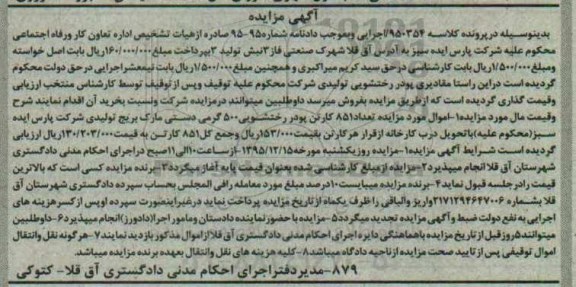 آگهی مزایده
بدینوسیله در پرونده کلاسه ۹۵۰۳۵۴/اجرایی وبموجب دادنامه شماره ۹۵-۹۵ صادره از هیات تشخیص اداره تعاون کار ورفاه اجتماعی
محکوم علیه شرکت پارس ایده سبز به آدرس آق قلا شهرک صنعتی فاز ۲ نبش تولید ۲ پرداخت مبلغ ۱۶۰/۰۰۰/۰۰۰ ریال بابت اصل خواسته
ومبلغ ۱/۵۰۰/۰۰۰ ریال بابت کارشناسی در حق سید کریم میراکبری و همچنین مبلغ ۱/۵۰۰/۰۰۰ ریال بابت نیمعشراجرایی در حق دولت محکوم
گردیده است دراین راستا مقادیری پودر رختشویی تولیدی شرکت محکوم علیه توقیف وپس از توقیف توسط کارشناس منتخب ارزیابی
وقیمت گذاری گردیده است که از طریق مزایده بفروش میرسد داوطلبین میتوانند درمزایده شرکت ونسبت بخرید آن اقدام نمایند شرح
وقیمت مال مورد مزایده ۱-اموال مورد مزایده تعداد ۸۵۱ کارتن پودر رختشویی ۵۰۰ گرمی دستی مارک بریج تولیدی شرکت پارس ایده
سبز(محکوم علیه)باتحویل درب کارخانه ازقرار هر کارتن بقیمت ۱۵۳/۰۰۰ ریال وجمع کل ۸۵۱ کارتن به قیمت ۱۳۰/۲۰۳/۰۰۰ ریال ارزیابی
گردیده است شرایط آگهی مزایده ۱-مزایده روز یکشنبه مورخه ۱۳۹۵/۱۲/۱۵ از ساعت ۱۰ الی ۱۱ صبح دراجرای احکام مدنی دادگستری
شهرستان آق قلا انجام میپذیرد ۲-مزایده ازمبلغ کارشناسی شده بعنوان قیمت پایه آغاز میگردد ۳-برنده مزایده کسی است که بالاترین
قیمت رادرجلسه قبول نماید ۴-برنده مزایده میبایست ۱۰ درصد مبلغ مورد معامله رافی المجلس بحساب سپرده دادگستری شهرستان آق
قلا بشماره ۲۱۷۱۲۹۴۶۴۷۰۰۶ واریز والباقی را ظرف یکماه ازتاریخ مزایده پرداخت نماید درغیراینصورت سپرده اوپس ازکسرهزینه های
اجرایی به نفع دولت ضبط وآگهی مزایده تجدید میگردد ۵-مزایده باحضور نماینده دادستان ومامور اجرا(دادورز)انجام میپذیرد ۶-داوطلبین
میتوانند ۵ روز قبل ازتاریخ مزایده باهماهنگی دایره اجرای احکام مدنی دادگستری آق قلا ازاموال مذکور بازدید نمایند ۷-هر گونه نقل وانتقال
اموال توقیفی پس از تایید صحت مزایده ازناحیه دادگاه میباشد ۸-کلیه هزینه های نقل وانتقال بعهده برنده مزایده میباشد.
۸۷۹-مدیر دفتر اجرای احکام مدنی دادگستری آق قلا- کتوکی